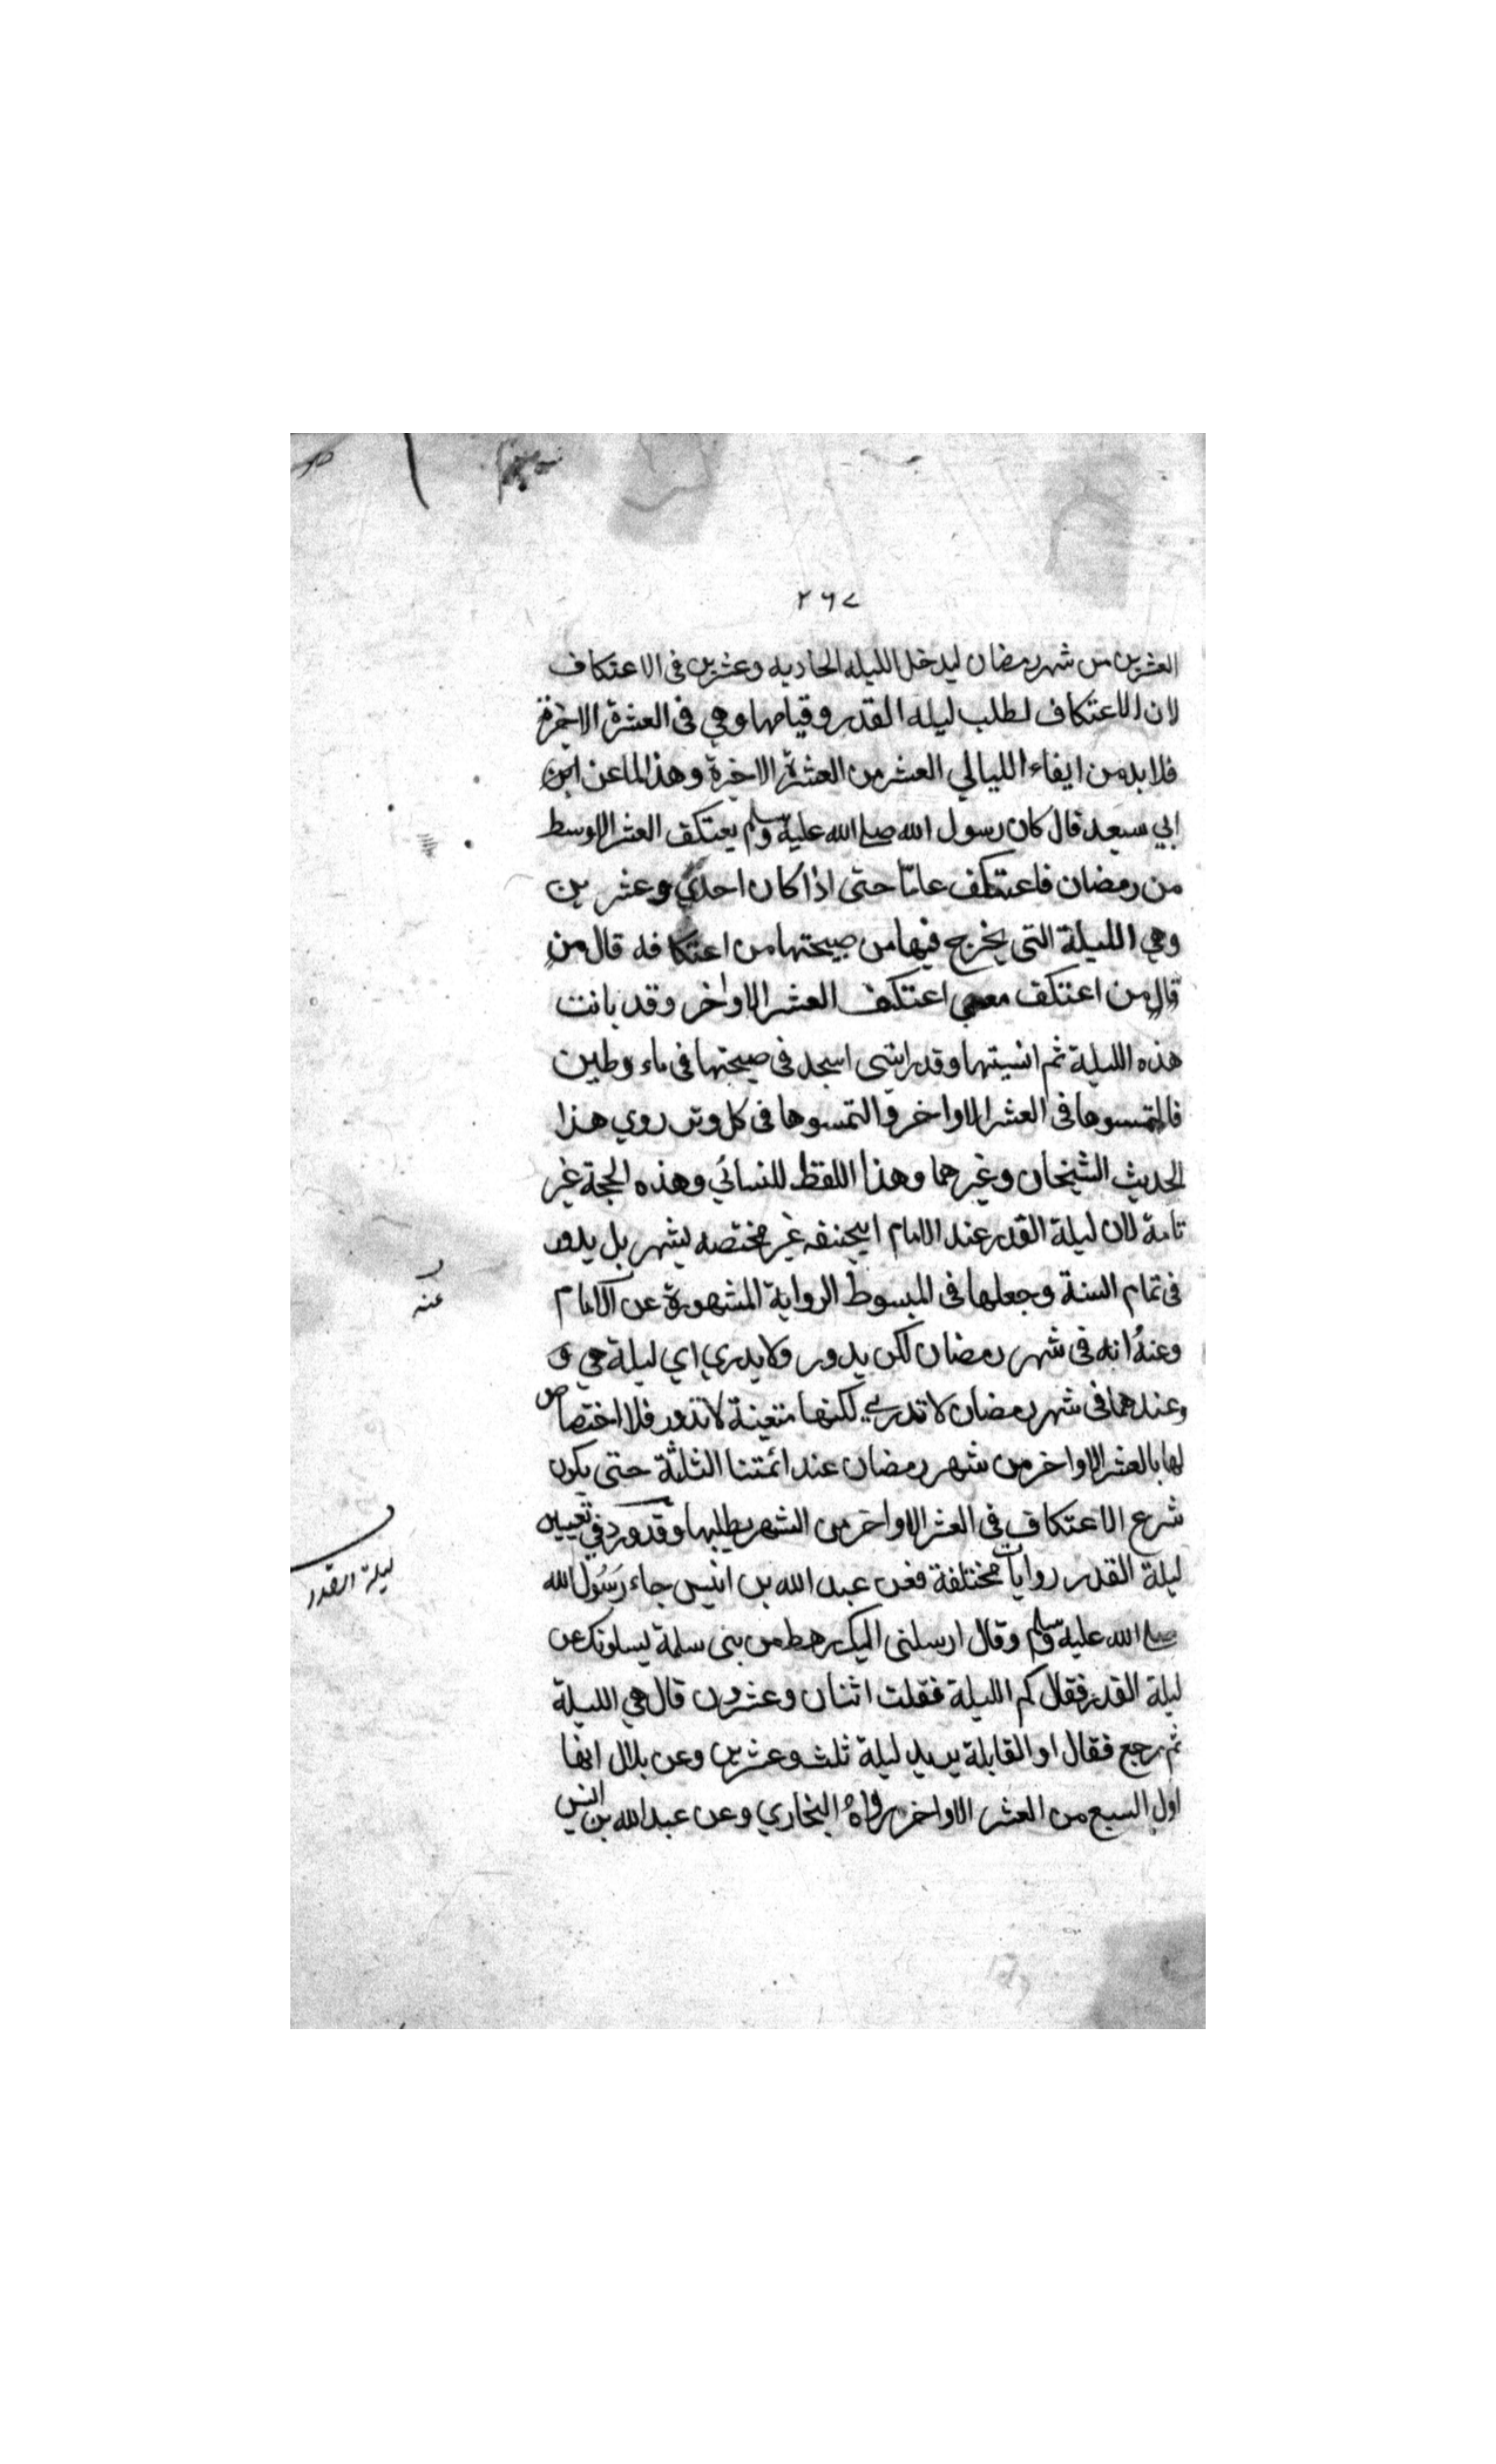 ٢٦٧
العشرين من شهر رمضان ليدخل الليله الحاديه وعشرين فى الاعتكاف
لان الاعتكاف لطلب ليله القدر وقيامها وهي فى العشرة الاخيرة
فلا بد من ايفاء الليالي العشر من العشرة الاخيرة وهذا لما عن ابن
ابي سعيد قال كان رسول الله صلى الله عليه وسلم يعتكف العشر الاوسط
من رمضان فاعتكف عاما حتى اذا كان احدي وعشرين
وهي الليلة التى يخرج فيها من صبيحتها من اعتكافه قال من
قال من اعتكف معي اعتكف العشر الاواخر وقد بانت
هذه الليلة ثم انسيتها وقد رايتنى اسجد فى صبيحتها فى ماء وطين
فالتمسوها فى العشر الاواخر والتمسوها فى كل وتر روي هذا
الحديث الشيخان وغيرهما وهذا اللفظ للنسائي وهذه الحجة غير
تامة لان ليلة القدر عند الامام ابيحنفه غير مختصه بشهر بل يدور
فى تمام السنة وجعلها فى المبسوط الرواية المشهورة عن الامام
وعنه انه فى شهر رمضان لكن يدور ولا يدري اي ليلة هي و
وعندهما فى شهر رمضان لا تدري لكنها متعينة لا تدور فلا اختصاص
لها بالعشر الاواخر من شهر رمضان عند ائمتنا الثلثة حتى يكون
شرع الاعتكاف فى العشر الاواخر من الشهر يطلبها وقد ورد في تعيين
ليلة القدر روايات مختلفة فعن عبد الله بن انيس جاء رسول الله
صلى الله عليه وسلم وقال ارسلنى اليك رهط من بنى سلمة يسلونك عن
ليلة القدر فقال كم الليلة فقلت اثنان وعشرون قال هي الليلة
ثم رجع فقال او القابلة يريد ليلة ثلث وعشرين وعن بلال انها
اول السبع من العشر الاواخر رواه البخاري وعن عبد الله بن انيس
عنه
ليلة القدر